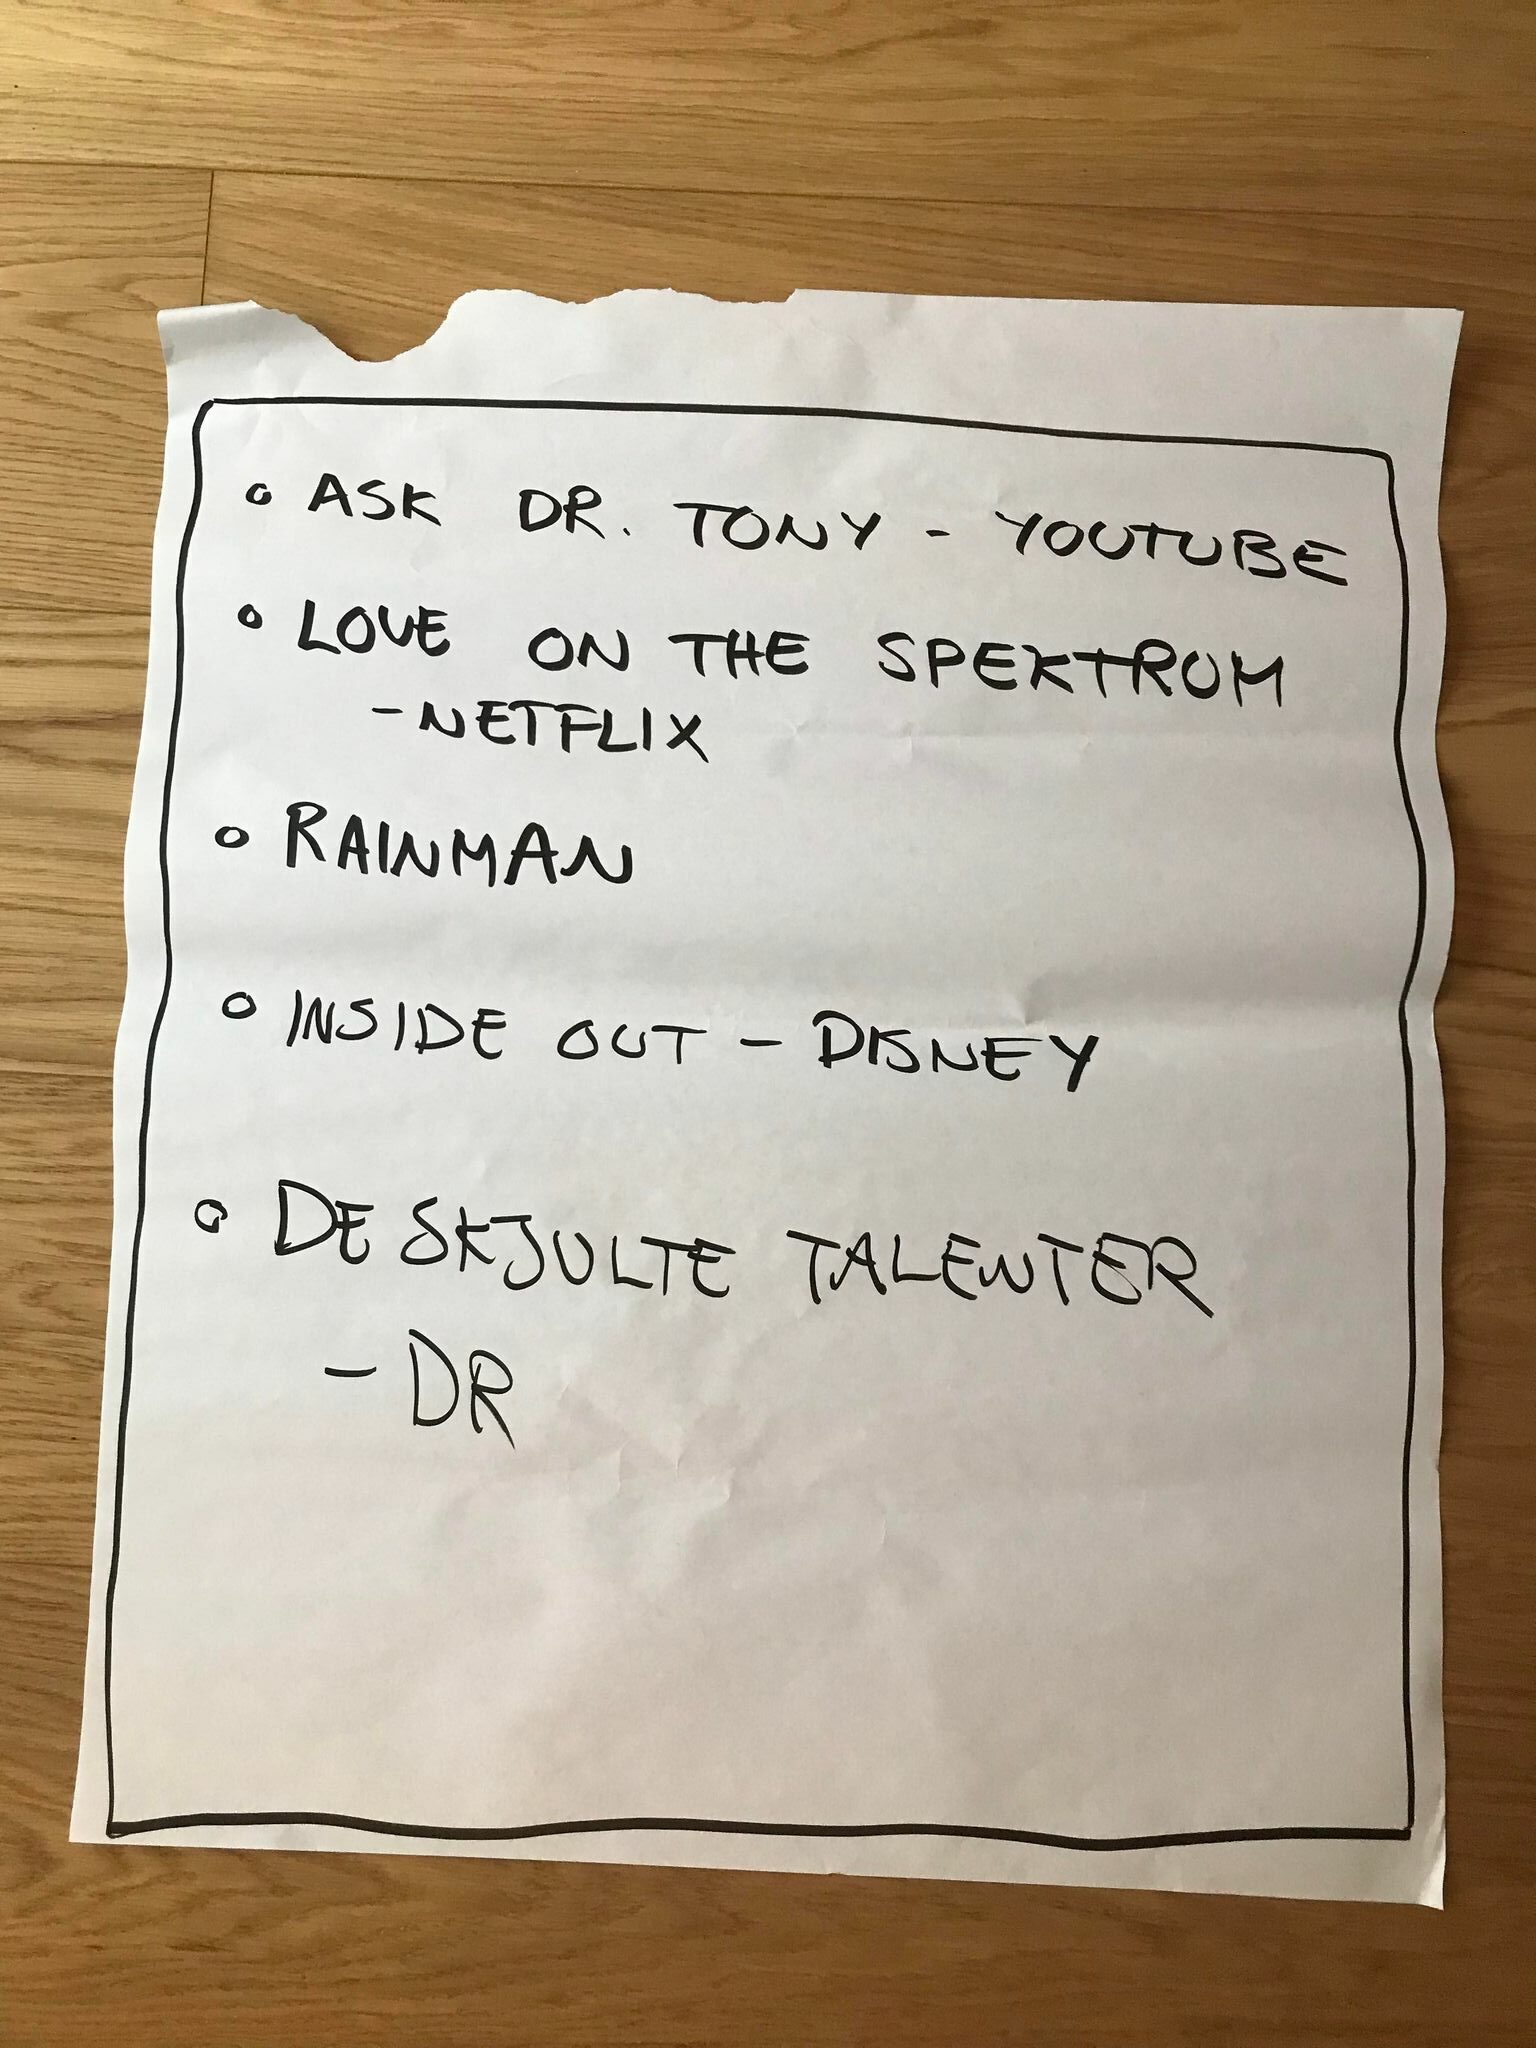 o ASK DR. TONY - YOUTUBE
o LOVE ON THE SPEKTRUM
- NETFLIX
o RAINMAN
o INSIDE OUT - DISNEY
o DE SKJULTE TALENTER
- DR